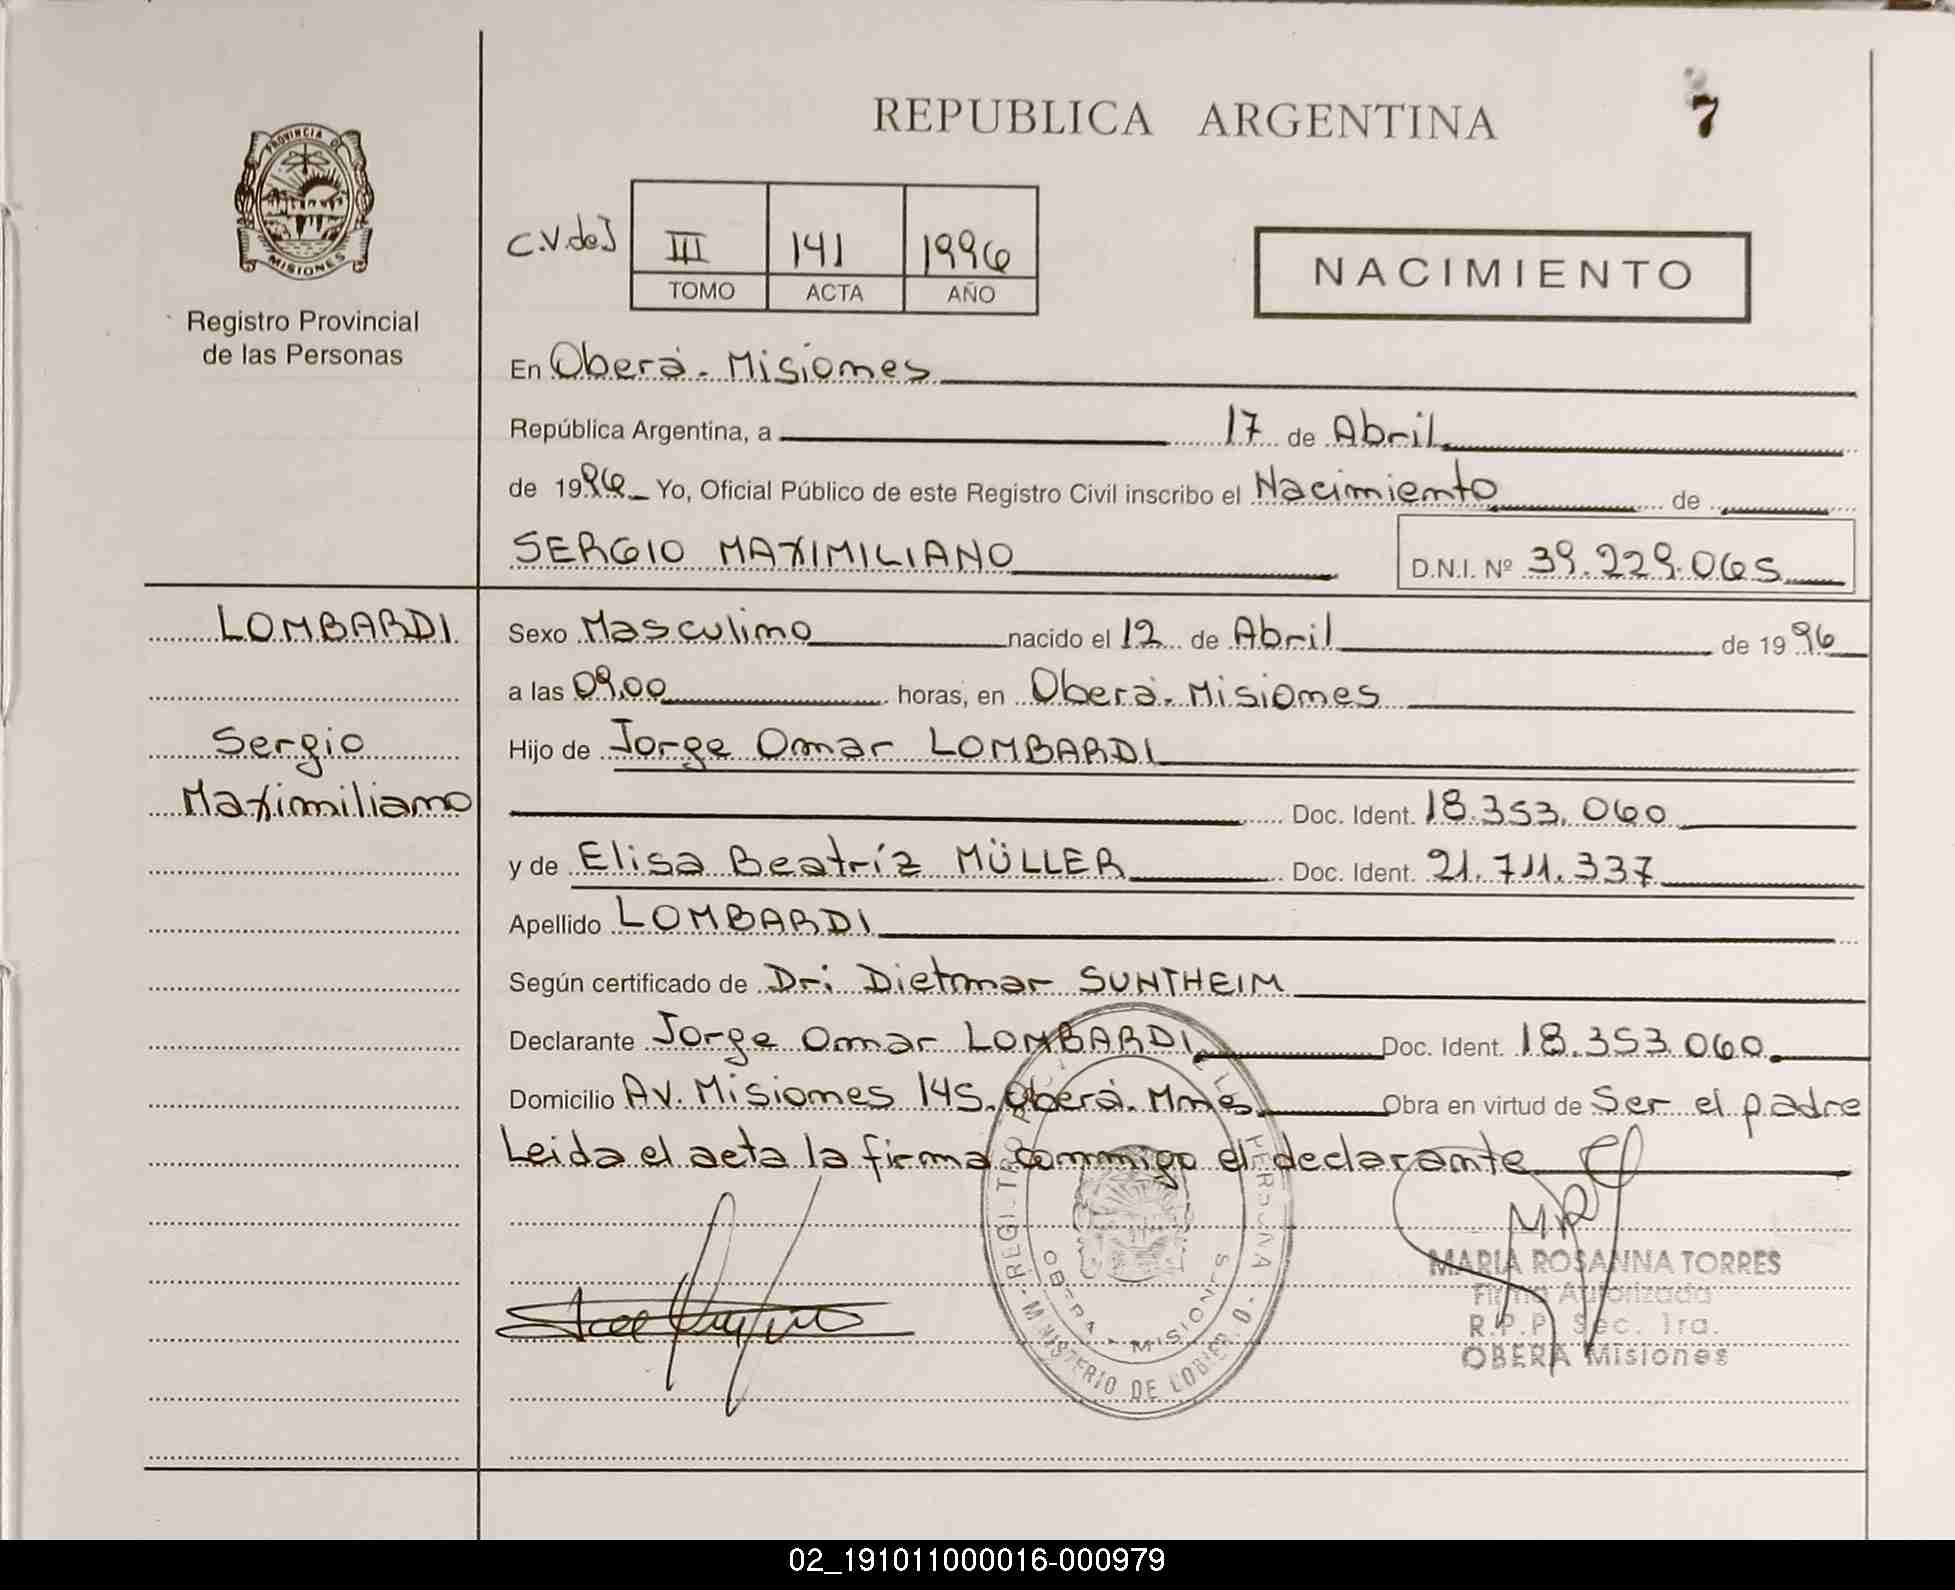 REPUBLICA ARGENTINA
7
PROVINCIA DE
MISIONES
Registro Provincial
de las Personas
C.V.deJ
III 141 1996
TOMO ACTA AÑO
NACIMIENTO
En Oberá - Misiones
República Argentina, a 17 de Abril
de 1996 Yo, Oficial Público de este Registro Civil inscribo el Nacimiento de
SERGIO MAXIMILIANO D.N.I. Nº 39.229.065
LOMBARDI
Sergio
Maximiliano
Sexo Masculino nacido el 12 de Abril de 1996
a las 09,00 horas, en Oberá - Misiones
Hijo de Jorge Omar LOMBARDI
Doc. Ident. 18.353.060
y de Elisa Beatríz MÜLLER Doc. Ident. 21.711.337
Apellido LOMBARDI
Según certificado de Dr: Dietmar SUNTHEIM
Declarante Jorge Omar LOMBARDI Doc. Ident. 18.353.060
Domicilio Av. Misiones 145. Oberá. Mnes Obra en virtud de Ser el padre
Leida el acta la firma conmigo el declarante
OBERA - MISIONES
MINISTERIO DE GOBIERNO
MARIA ROSANNA TORRES
Firma Autorizada
R.P.P. Sec. 1ra.
OBERA Misiones
02_191011000016-000979